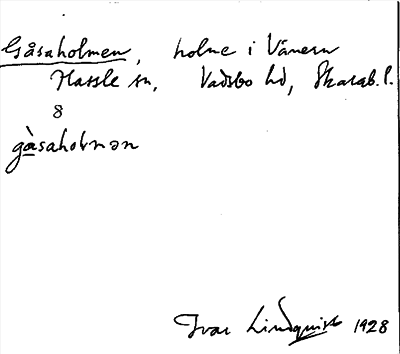 Gåsaholmen, holme i Vänern
Hassle sn, Vadsbo hd, Skarab. l.
8
gàsaholmən
Ivar Lindquist 1928